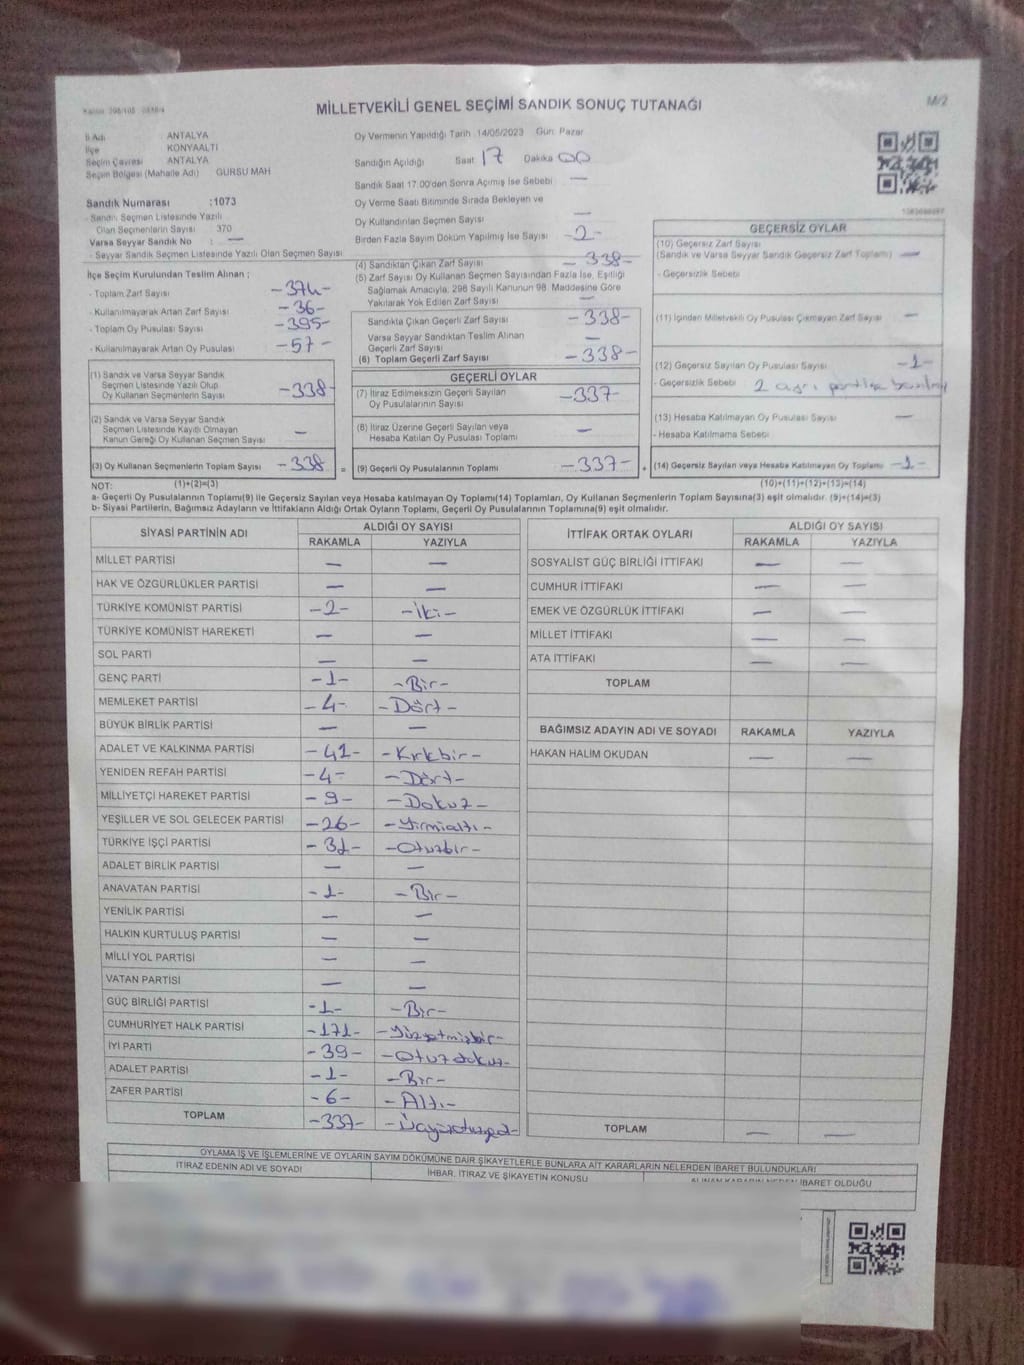 MİLLETVEKİLİ GENEL SEÇİMİ SANDIK SONUÇ TUTANAĞI
M/2
İl Adı ANTALYA
İlçe KONYAALTI
Seçim Çevresi ANTALYA
Seçim Bölgesi (Mahalle Adı) GURSU MAH
Sandık Numarası :1073
- Sandık Seçmen Listesinde Yazılı
Olan Seçmenlerin Sayısı 370
Varsa Seyyar Sandık No : —
- Seyyar Sandık Seçmen Listesinde Yazılı Olan Seçmen Sayısı
Oy Vermenin Yapıldığı Tarih 14/05/2023 Gün: Pazar
Sandığın Açıldığı Saat 17 Dakika 00
Sandık Saat 17.00'den Sonra Açılmış İse Sebebi —
Oy Verme Saati Bitiminde Sırada Bekleyen ve
Oy Kullandırılan Seçmen Sayısı —
Birden Fazla Sayım Döküm Yapılmış İse Sayısı -2-
İlçe Seçim Kurulundan Teslim Alınan ;
- Toplam Zarf Sayısı -374-
- Kullanılmayarak Artan Zarf Sayısı -36-
- Toplam Oy Pusulası Sayısı -395-
- Kullanılmayarak Artan Oy Pusulası -57-
(1) Sandık ve Varsa Seyyar Sandık
Seçmen Listesinde Yazılı Olup
Oy Kullanan Seçmenlerin Sayısı -338-
(2) Sandık ve Varsa Seyyar Sandık
Seçmen Listesinde Kayıtlı Olmayan
Kanun Gereği Oy Kullanan Seçmen Sayısı —
(3) Oy Kullanan Seçmenlerin Toplam Sayısı -338- =
(4) Sandıktan Çıkan Zarf Sayısı -338-
(5) Zarf Sayısı Oy Kullanan Seçmen Sayısından Fazla İse, Eşitliği
Sağlamak Amacıyla, 298 Sayılı Kanunun 98. Maddesine Göre
Yakılarak Yok Edilen Zarf Sayısı —
Sandıkta Çıkan Geçerli Zarf Sayısı -338-
Varsa Seyyar Sandıktan Teslim Alınan
Geçerli Zarf Sayısı —
(6) Toplam Geçerli Zarf Sayısı -338-
GEÇERLİ OYLAR
(7) İtiraz Edilmeksizin Geçerli Sayılan
Oy Pusulalarının Sayısı -337-
(8) İtiraz Üzerine Geçerli Sayılan veya
Hesaba Katılan Oy Pusulası Toplamı —
(9) Geçerli Oy Pusulalarının Toplamı -337- +
GEÇERSİZ OYLAR
(10) Geçersiz Zarf Sayısı
(Sandık ve Varsa Seyyar Sandık Geçersiz Zarf Toplamı) —
- Geçersizlik Sebebi
(11) İçinden Milletvekili Oy Pusulası Çıkmayan Zarf Sayısı —
(12) Geçersiz Sayılan Oy Pusulası Sayısı -1-
- Geçersizlik Sebebi 2 ayrı partiye
(13) Hesaba Katılmayan Oy Pusulası Sayısı —
- Hesaba Katılmama Sebebi
(14) Geçersiz Sayılan veya Hesaba Katılmayan Oy Toplamı -1-
NOT: (1)+(2)=(3) (10)+(11)+(12)+(13)=(14)
a- Geçerli Oy Pusulalarının Toplamı(9) ile Geçersiz Sayılan veya Hesaba katılmayan Oy Toplamı(14) Toplamları, Oy Kullanan Seçmenlerin Toplam Sayısına(3) eşit olmalıdır. (9)+(14)=(3)
b- Siyasi Partilerin, Bağımsız Adayların ve İttifakların Aldığı Ortak Oyların Toplamı, Geçerli Oy Pusulalarının Toplamına(9) eşit olmalıdır.
SİYASİ PARTİNİN ADI ALDIĞI OY SAYISI
RAKAMLA YAZIYLA
MİLLET PARTİSİ — —
HAK VE ÖZGÜRLÜKLER PARTİSİ — —
TÜRKİYE KOMÜNİST PARTİSİ -2- -İki-
TÜRKİYE KOMÜNİST HAREKETİ — —
SOL PARTİ — —
GENÇ PARTİ -1- -Bir-
MEMLEKET PARTİSİ -4- -Dört-
BÜYÜK BİRLİK PARTİSİ — —
ADALET VE KALKINMA PARTİSİ -41- -Kırkbir-
YENİDEN REFAH PARTİSİ -4- -Dört-
MİLLİYETÇİ HAREKET PARTİSİ -9- -Dokuz-
YEŞİLLER VE SOL GELECEK PARTİSİ -26- -Yirmialtı-
TÜRKİYE İŞÇİ PARTİSİ -31- -Otuzbir-
ADALET BİRLİK PARTİSİ — —
ANAVATAN PARTİSİ -1- -Bir-
YENİLİK PARTİSİ — —
HALKIN KURTULUŞ PARTİSİ — —
MİLLİ YOL PARTİSİ — —
VATAN PARTİSİ — —
GÜÇ BİRLİĞİ PARTİSİ -1- -Bir-
CUMHURİYET HALK PARTİSİ -171- -Yüzyetmişbir-
İYİ PARTİ -39- -Otuzdokuz-
ADALET PARTİSİ -1- -Bir-
ZAFER PARTİSİ -6- -Altı-
TOPLAM -337- -Üçyüzotuzyedi-
İTTİFAK ORTAK OYLARI ALDIĞI OY SAYISI
RAKAMLA YAZIYLA
SOSYALİST GÜÇ BİRLİĞİ İTTİFAKI — —
CUMHUR İTTİFAKI — —
EMEK VE ÖZGÜRLÜK İTTİFAKI — —
MİLLET İTTİFAKI — —
ATA İTTİFAKI — —
TOPLAM
BAĞIMSIZ ADAYIN ADI VE SOYADI RAKAMLA YAZIYLA
HAKAN HALİM OKUDAN — —
TOPLAM — —
OYLAMA İŞ VE İŞLEMLERİNE VE OYLARIN SAYIM DÖKÜMÜNE DAİR ŞİKAYETLERLE BUNLARA AİT KARARLARIN NELERDEN İBARET BULUNDUKLARI
İTİRAZ EDENİN ADI VE SOYADI İHBAR, İTİRAZ VE ŞİKAYETİN KONUSU ALINAN KARARIN NEDEN İBARET OLDUĞU